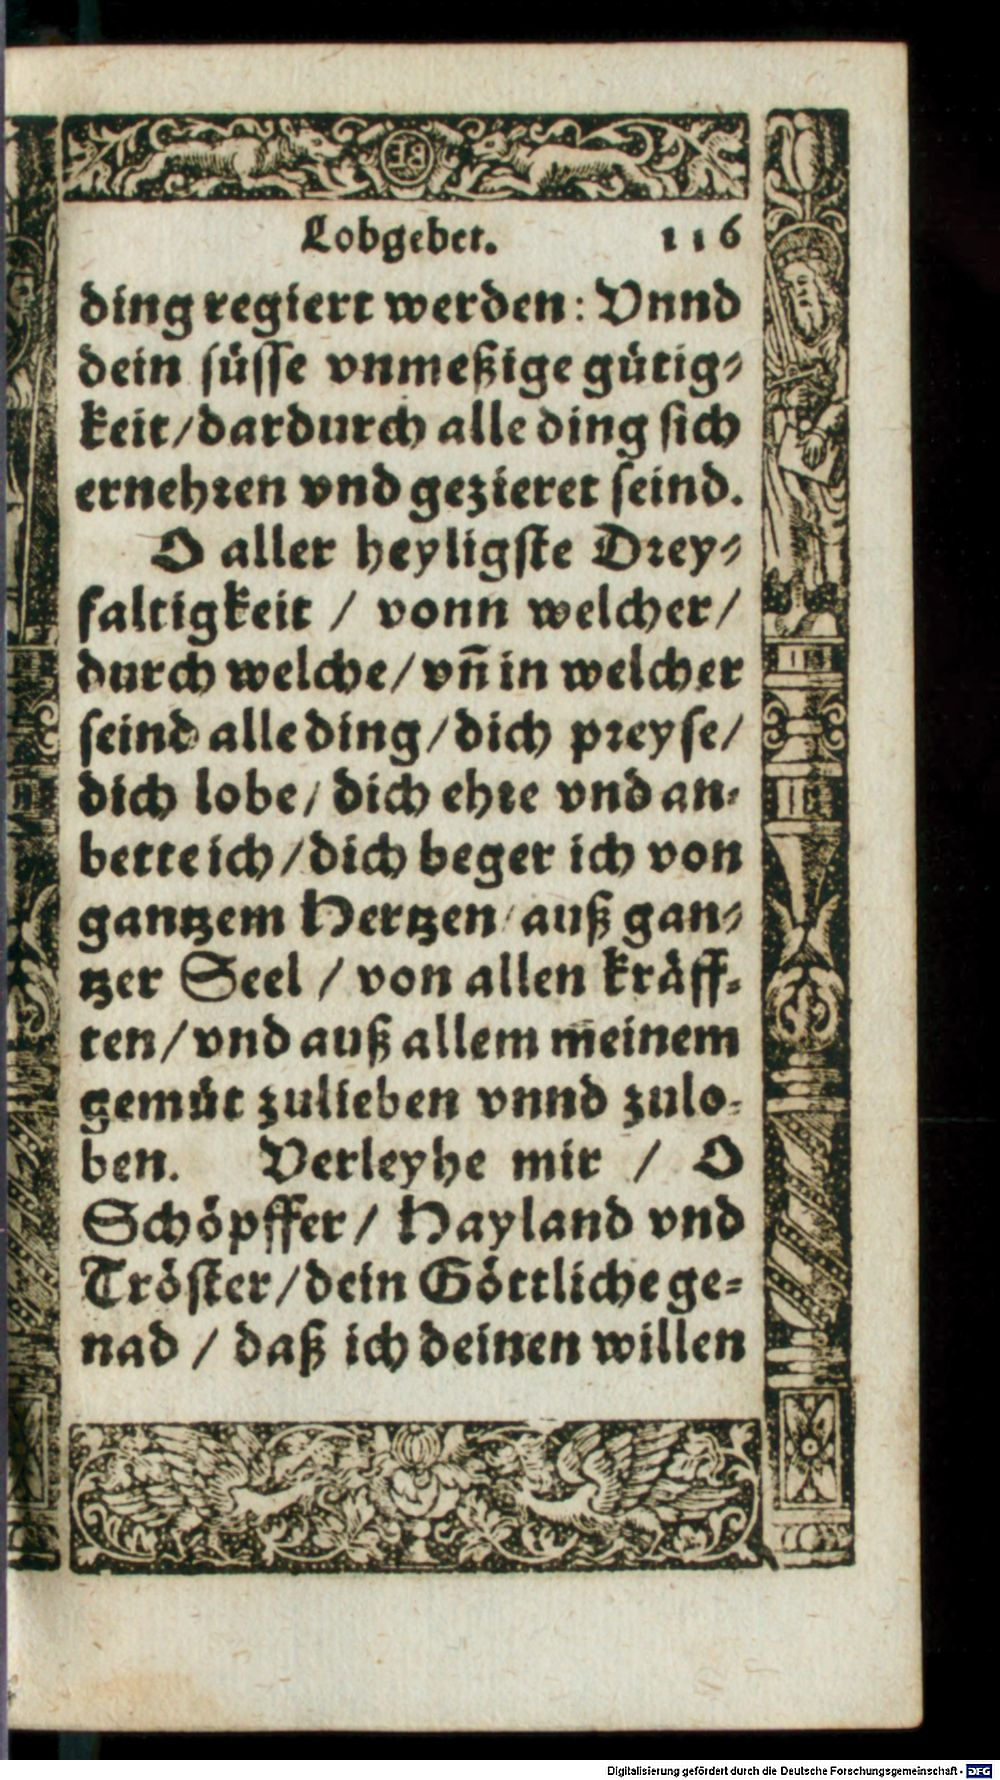 Lobgebet. 116
ding regiert werden: Vnnd
dein süsse vnmeßige gütig⸗
keit/dardurch alle ding sich
ernehren vnd gezieret seind.
O aller heyligste Drey⸗
faltigkeit / vonn welcher/
durch welche/vn̄ in welcher
seind alle ding/dich preyse/
dich lobe/dich ehre vnd an⸗
bette ich/dich beger ich von
gantzem Hertzen/auß gan⸗
tzer Seel / von allen kräff⸗
ten/vnd auß allem meinem
gemüt zulieben vnnd zulo⸗
ben. Verleyhe mir / O
Schöpffer/ Hayland vnd
Tröster/dein Göttliche ge⸗
nad / daß ich deinen willen
Digitalisierung gefördert durch die Deutsche Forschungsgemeinschaft - DFG